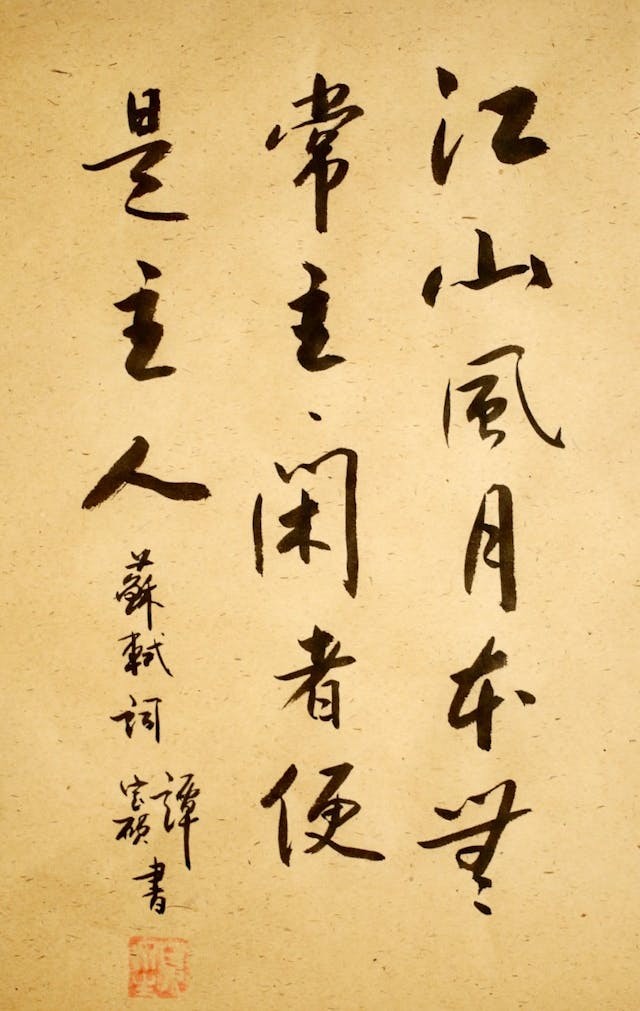 江山風月本無
常主閑者便
是主人
蘇軾詞
譚書